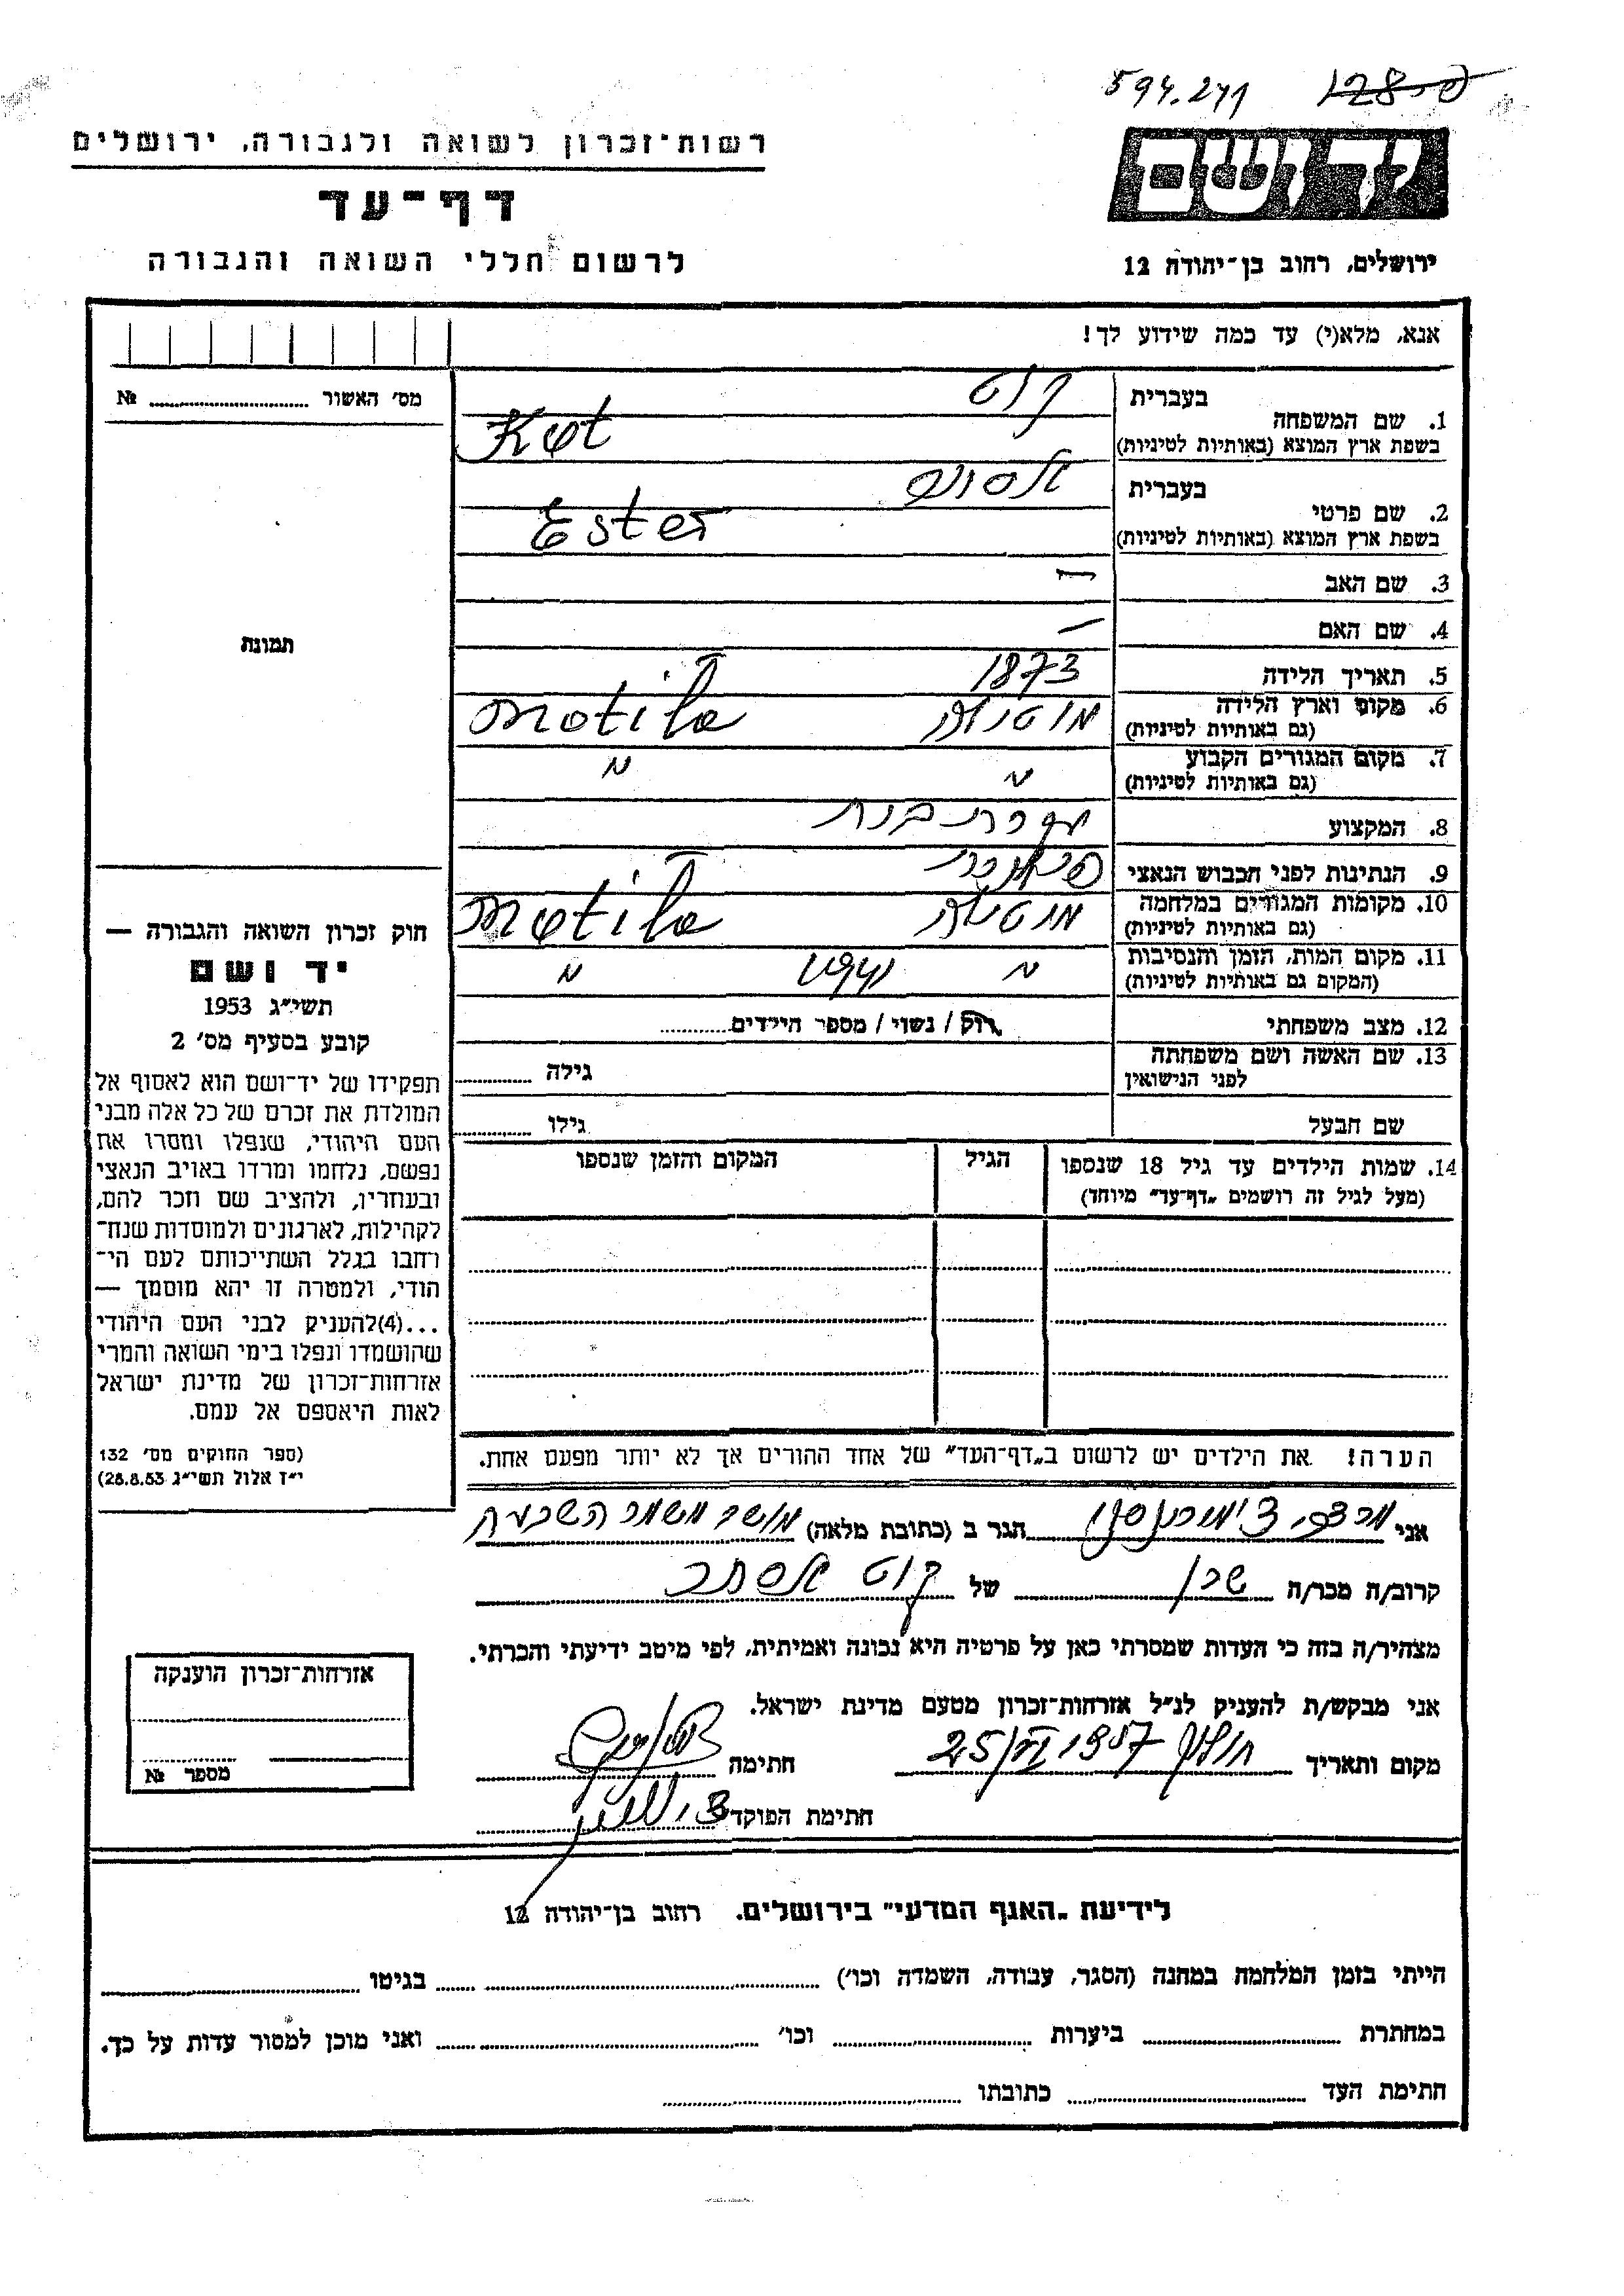 594.241 128
רשות־זכרון לשואה ולגבורה, ירושלים
יד ושם
דף־עד
לרשום חללי השואה והגבורה
ירושלים, רחוב בן־יהודה 12
אנא, מלא(י) עד כמה שידוע לך!
מס' האשור № 
1. שם המשפחה
בעברית קוט
בשפת ארץ המוצא (באותיות לטיניות) Kot
2. שם פרטי
בעברית
בשפת ארץ המוצא (באותיות לטיניות) Ester
3. שם האב —
4. שם האם —
5. תאריך הלידה 1873
6. מקום וארץ הלידה
(גם באותיות לטיניות) מוטילה motila
7. מקום המגורים הקבוע
(גם באותיות לטיניות) " "
8. המקצוע עקרת בית
9. הנתינות לפני הכבוש הנאצי
10. מקומות המגורים במלחמה
(גם באותיות לטיניות) מוטילה motila
11. מקום המות, הזמן והנסיבות
(המקום גם באותיות לטיניות) " "
12. מצב משפחתי רוק / נשוי / מספר הילדים
13. שם האשה ושם משפחתה
לפני הנישואין גילה
שם הבעל גילו
14. שמות הילדים עד גיל 18 שנספו
(מעל לגיל זה רושמים „דף־עד" מיוחד)
הגיל
המקום והזמן שנספו
תמונת
חוק זכרון השואה והגבורה —
יד ושם
תשי״ג 1953
קובע בסעיף מס' 2
תפקידו של יד־ושם הוא לאסוף אל
המולדת את זכרם של כל אלה מבני
העם היהודי, שנפלו ומסרו את
נפשם, נלחמו ומרדו באויב הנאצי
ובעוזריו, ולהציב שם וזכר להם,
לקהילות, לארגונים ולמוסדות שנח־
רחבו בגלל השתייכותם לעם הי־
הודי, ולמטרה זו יהא מוסמך —
...(4)להעניק לבני העם היהודי
שהושמדו ונפלו בימי השואה והמרי
אזרחות־זכרון של מדינת ישראל
לאות היאספם אל עמם.
(ספר החוקים מס' 132
י״ז אלול תשי״ג 28.8.53)
הערה! את הילדים יש לרשום ב„דף־העד" של אחד ההורים אך לא יותר מפעם אחת.
אני מרדכי הגר ב (כתובת מלאה) מושב משמר השבעה
קרוב/ה מכר/ה שכן של קוט אסתר
מצהיר/ה בזה כי העדות שמסרתי כאן על פרטיה היא נכונה ואמיתית, לפי מיטב ידיעתי והכרתי.
אני מבקש/ת להעניק לנ״ל אזרחות־זכרון מטעם מדינת ישראל.
מקום ותאריך חולון 1957 חתימה
חתימת הפוקד
אזרחות־זכרון הוענקה
מספר №
לידיעת „האגף המדעי" בירושלים. רחוב בן־יהודה 12
הייתי בזמן המלחמה במחנה (הסגר, עבודה, השמדה וכו') בגיטו
במחתרת ביערות וכו' ואני מוכן למסור עדות על כך.
חתימת העד כתובתו